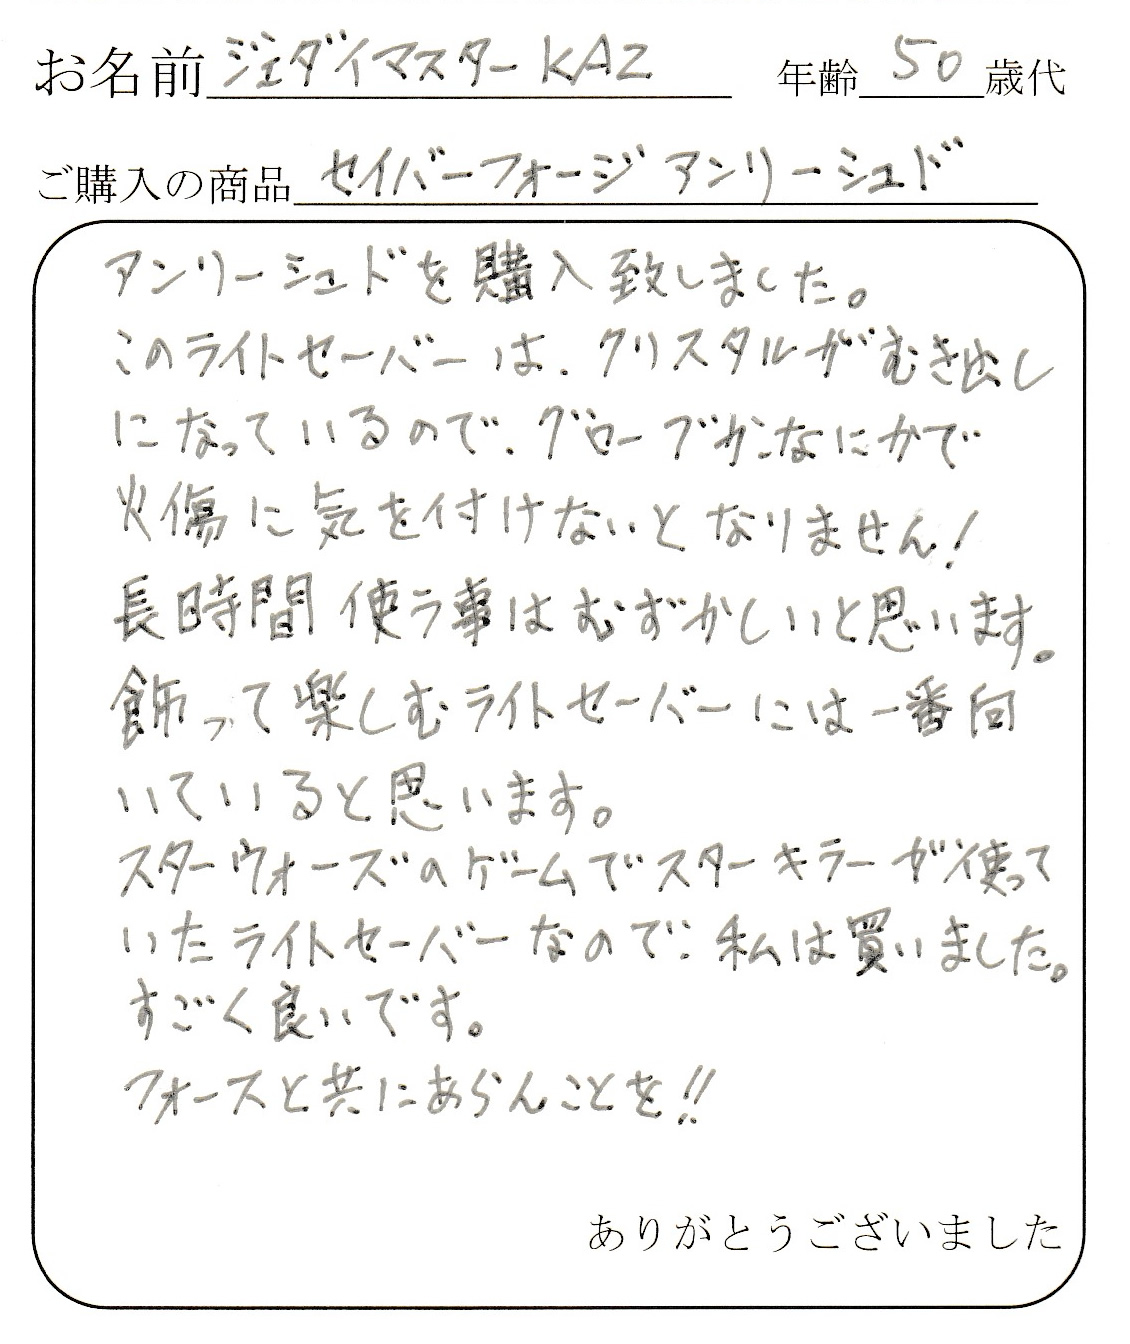 お名前 ジェダイマスター KAZ 年齢 50 歳代
ご購入の商品 セイバーフォージ アンリーシュド
アンリーシュドを購入致しました。
このライトセーバーは、クリスタルがむき出し
になっているので、グローブかなにかで
火傷に気を付けないとなりません!
長時間使う事はむずかしいと思います。
飾って楽しむライトセーバーには一番向
いていると思います。
スターウォーズのゲームでスターキラーが使って
いたライトセーバーなので、私は買いました。
すごく良いです。
フォースと共にあらんことを!!
ありがとうございました